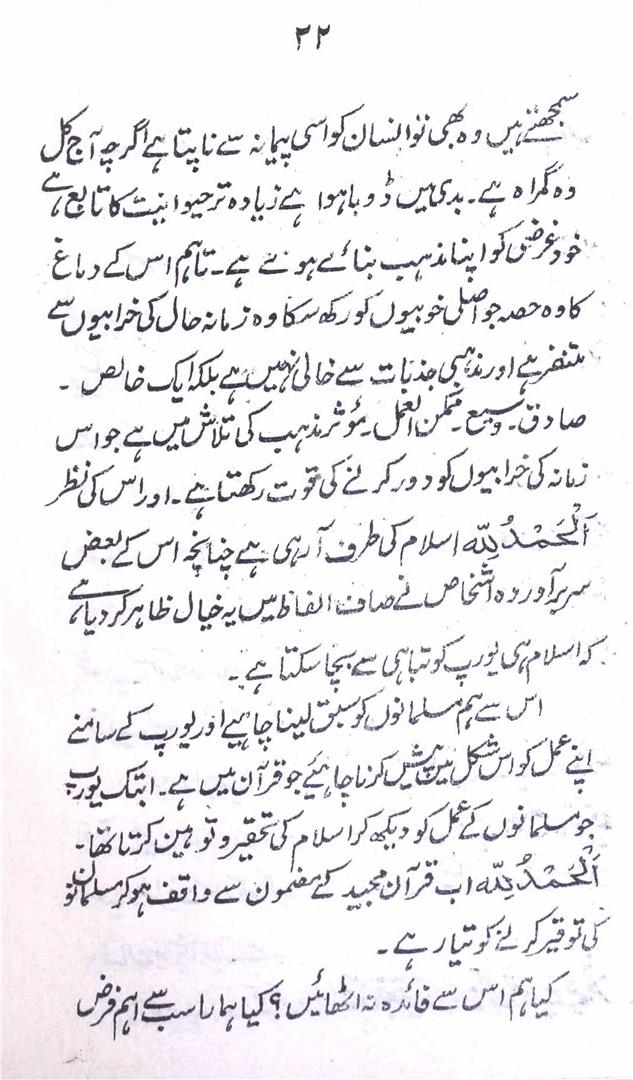 ۲۲
سمجھتے ہیں وہ بھی تو انسان کو اسی پیمانہ سے ناپتا ہے اگرچہ آج کل
وہ گمراہ ہے۔ بدی میں ڈوبا ہوا ہے زیادہ تر حیوانیت کا تابع ہے
خود غرضی کو اپنا مذہب بنائے ہوئے ہے۔ تاہم اس کے دماغ
کا وہ حصہ جو اصلی خوبیوں کو رکھ سکا وہ زمانہ حال کی خرابیوں سے
متنفر ہے اور مذہبی جذبات سے خالی نہیں ہے بلکہ ایک خالص۔
صادق۔ وسیع۔ ممکن العمل۔ مؤثر مذہب کی تلاش میں ہے جو اس
زمانہ کی خرابیوں کو دور کرنے کی قوت رکھتا ہے۔ اور اس کی نظر
اَلْحَمْدُ لِلّٰہ اسلام کی طرف آ رہی ہے چنانچہ اس کے بعض
سربرآوردہ اشخاص نے صاف الفاظ میں یہ خیال ظاہر کر دیا ہے
کہ اسلام ہی یورپ کو تباہی سے بچا سکتا ہے۔
اس سے ہم مسلمانوں کو سبق لینا چاہیے اور یورپ کے سامنے
اپنے عمل کو اس شکل میں پیش کرنا چاہئیے جو قرآن میں ہے۔ ابتک یورپ
جو مسلمانوں کے عمل کو دیکھ کر اسلام کی تحقیر و توہین کرتا تھا۔
اَلْحَمْدُ لِلّٰہ اب قرآن مجید کے مضمون سے واقف ہو کر مسلمانوں
کی توقیر کرنے کو تیار ہے۔
کیا ہم اس سے فائدہ نہ اٹھائیں؟ کیا ہمارا سب سے اہم فرض